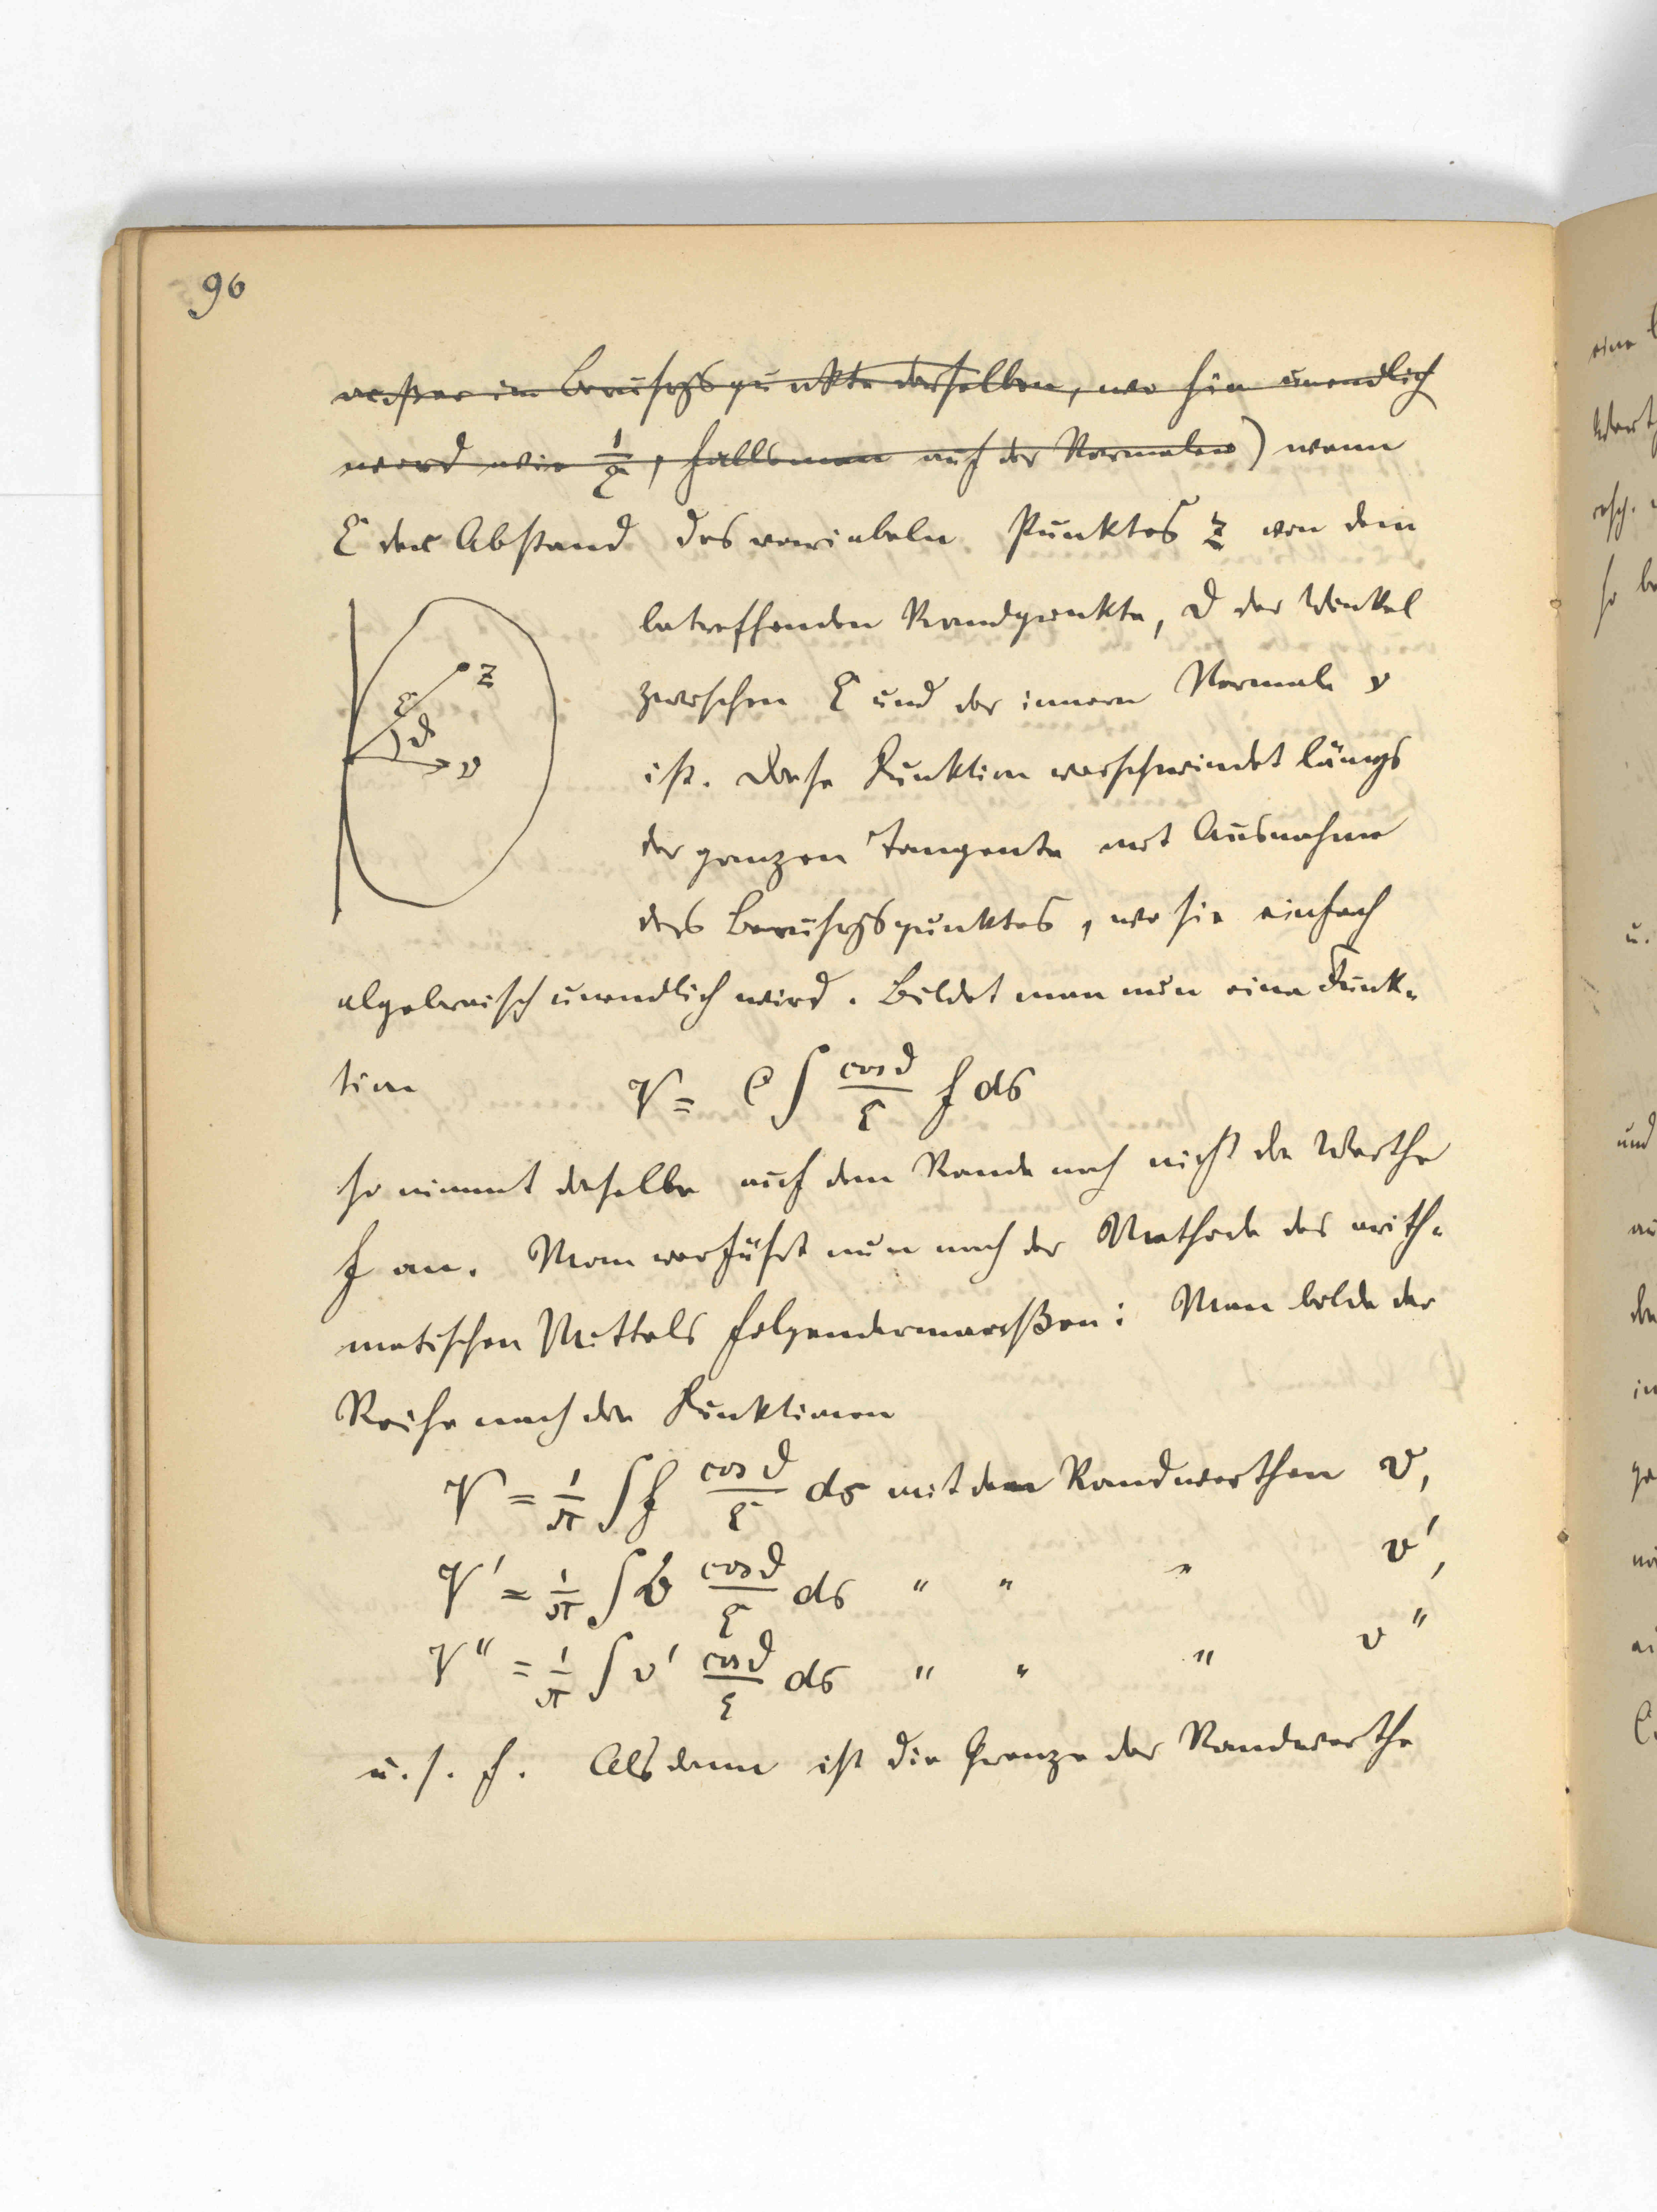 96
außer im Berührgspunkte derselben, wo sie unendlich
wird wie 1/ξ, falls man auf der Normalen) wenn
ξ der Abstand des variabeln Punktes z von dem
betreffenden Randpunkte, ϑ der Winkel
zwischen ξ und der innern Normale ν
ist. Diese Funktion verschwindet längs
der ganzen Tangente mit Ausnahme
des Berührgspunktes, wo sie einfach
algebraisch unendlich wird. Bildet man nun eine Funk-
tion V = C ∫ cosϑ/ξ f ds
z
ξ
ϑ
ν
so nimmt dieselbe auf dem Rande noch nicht die Werthe
f an. Man verfährt nun nach der Methode des arith-
metischen Mittels folgendermaaßen: Man bilde der
Reihe nach die Funktionen
V = 1/π ∫ f cosϑ/ξ ds mit den Randwerthen v,
V' = 1/π ∫ v cosϑ/ξ ds " " " v',
V" = 1/π ∫ v' cosϑ/ξ ds " " " v"
u. s. f. Alsdann ist die Grenze der Randwerthe